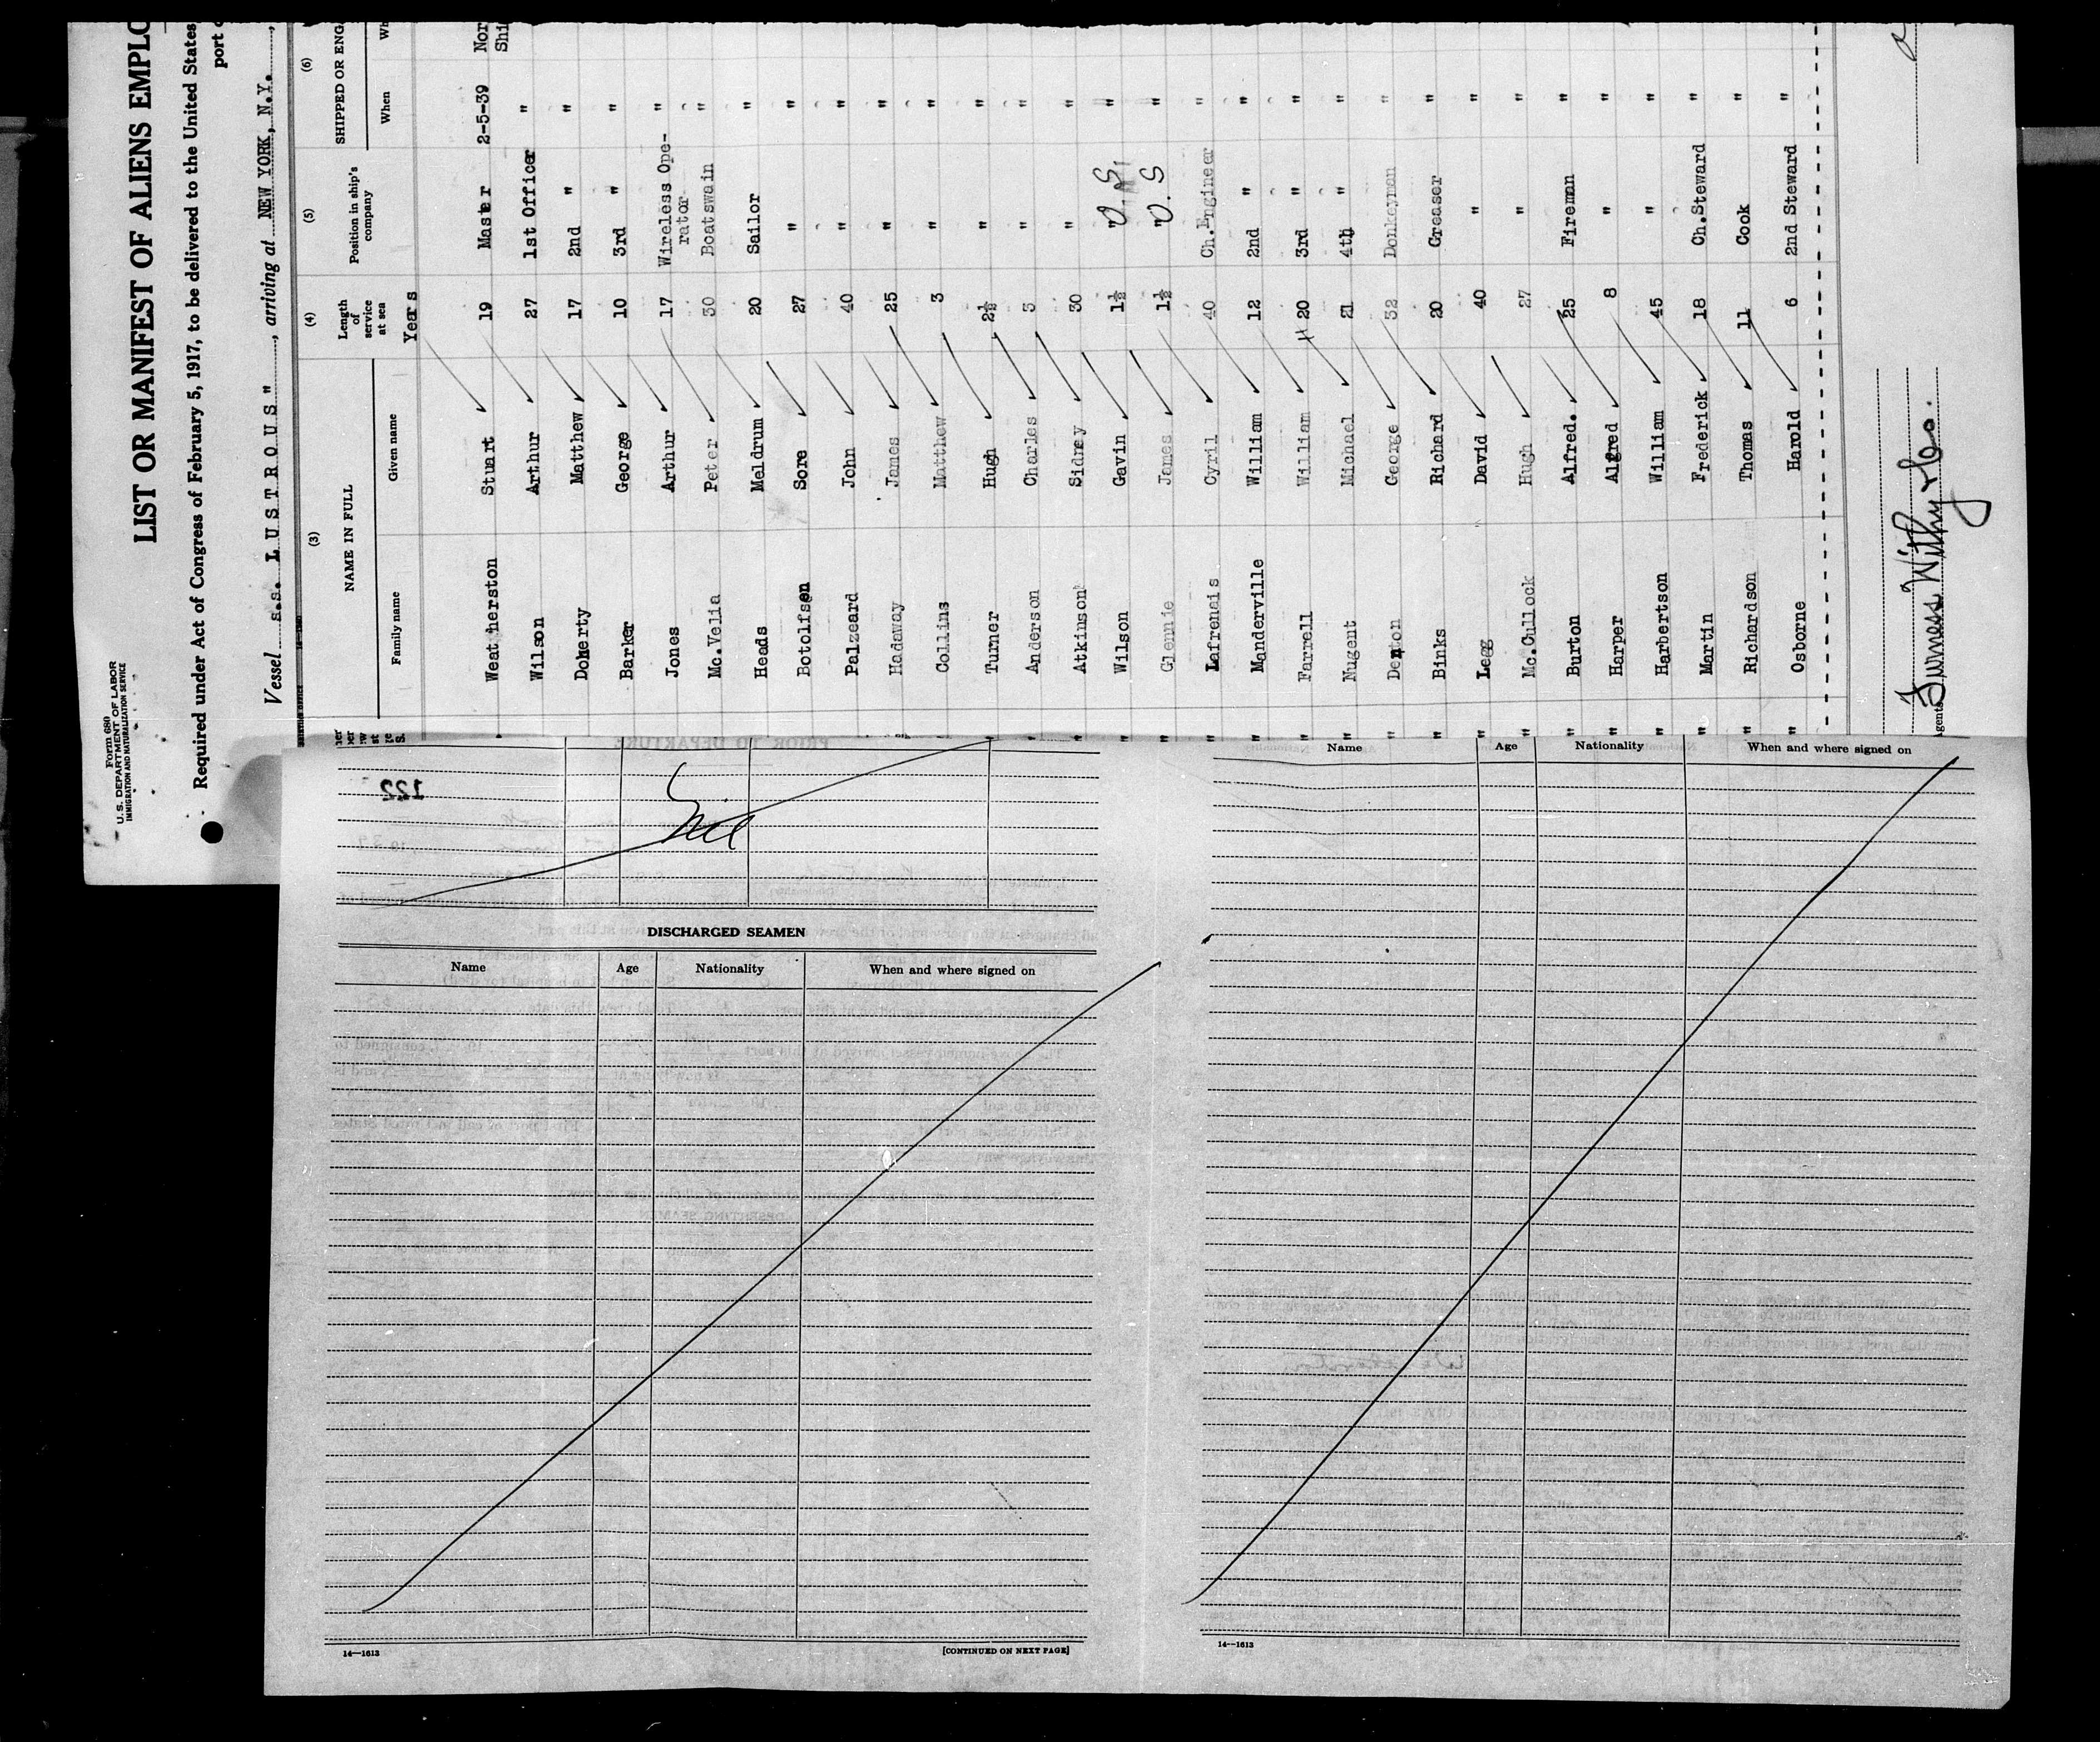 Form 680
U. S. DEPARTMENT OF LABOR
IMMIGRATION AND NATURALIZATION SERVICE
LIST OR MANIFEST OF ALIENS EMPLO
Required under Act of Congress of February 5, 1917, to be delivered to the United States
port
Vessel s.s. LUSTROUS", arriving at NEW YORK, N.Y.,
(3) (4) (5) (6)
NAME IN FULL Length of service at sea Position in ship's company SHIPPED OR ENG
Family name Given name When Wh
Years
Weatherston Stuart 19 Master 2-5-39 Nor
Shi
Wilson Arthur 27 1st Officer "
Doherty Matthew 17 2nd " "
Barker George 10 3rd " "
Jones Arthur 17 Wireless Ope- "
rator
Mc.Velia Peter 30 Boatswain "
Heads Meldrum 20 Sailor "
Botolfsen Sore 27 " "
Palzeard John 40 " "
Hadaway James 25 " "
Collins Matthew 3 " "
Turner Hugh 2½ " "
Anderson Charles 3 " "
Atkinson Sidney 30 " "
Wilson Gavin 1½ " O.S "
Glennie James 1½ " O.S "
Lafrenais Cyril 40 Ch.Engineer "
Manderville William 12 2nd " "
Farrell William 20 3rd " "
Nugent Michael 21 4th " "
Denton George 32 Donkeyman "
Binks Richard 20 Greaser "
Legg David 40 " "
Mc.Cullock Hugh 27 " "
Burton Alfred. 25 Fireman "
Harper Alfred 8 " "
Harbertson William 45 " "
Martin Frederick 18 Ch.Steward "
Richardson Thomas 11 Cook "
Osborne Harold 6 2nd Steward "
Agents Furness Withy & Co.
122
Nil
DISCHARGED SEAMEN
Name Age Nationality When and where signed on
14—1613 [CONTINUED ON NEXT PAGE]
Name Age Nationality When and where signed on
14—1613